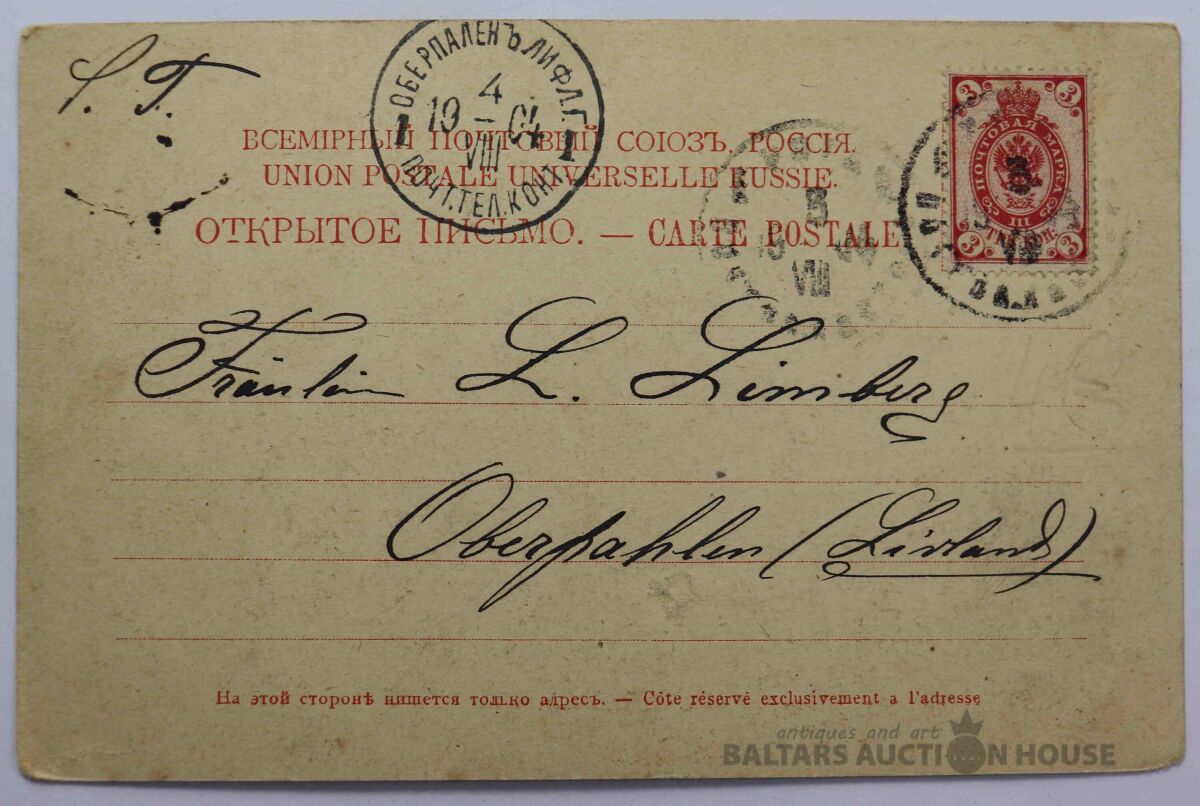 S. T.
ОБЕРПАЛЕНЪ ЛИФЛ.Г.
4
19 — 04
VIII
1 1
ПОЧТ.ТЕЛ.КОНТ.
ВСЕМІРНЫЙ ПОЧТОВЫЙ СОЮЗЪ. РОССІЯ.
UNION POSTALE UNIVERSELLE RUSSIE.
ОТКРЫТОЕ ПИСЬМО. — CARTE POSTALE
3 3
ПОЧТОВАЯ МАРКА
III
3 3
3
VIII
VIII
Fräulein L. Limberg
Oberpahlen (Livland)
На этой сторонѣ пишется только адресъ. — Côte réservé exclusivement a l'adresse
antiques and art
BALTARS AUCTION HOUSE